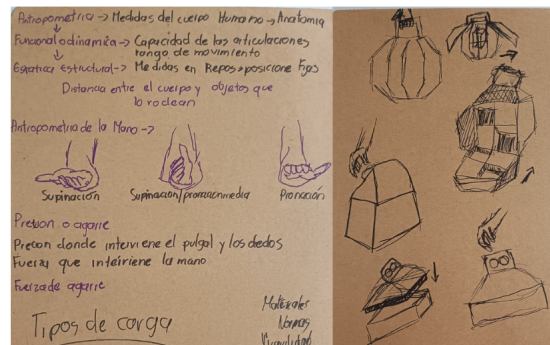 Antropometria -> Medidas del cuerpo Humano -> Anatomia
Funcional o dinamica -> Capacidad de las articulaciones
rango de movimiento
Estatica Estructural -> Medidas en Reposo + posicione Fijas
Distancia entre el cuerpo y objetos que
lo rodean
Antropometria de la Mano ->
Supinación
Supinación/pronacion media
Pronación
Presion o agarre
Precion donde interviene el pulgal y los dedos
Fuerza que inteirriene la mano
Fuerza de agarre
Tipos de carga
Materiales
Normas